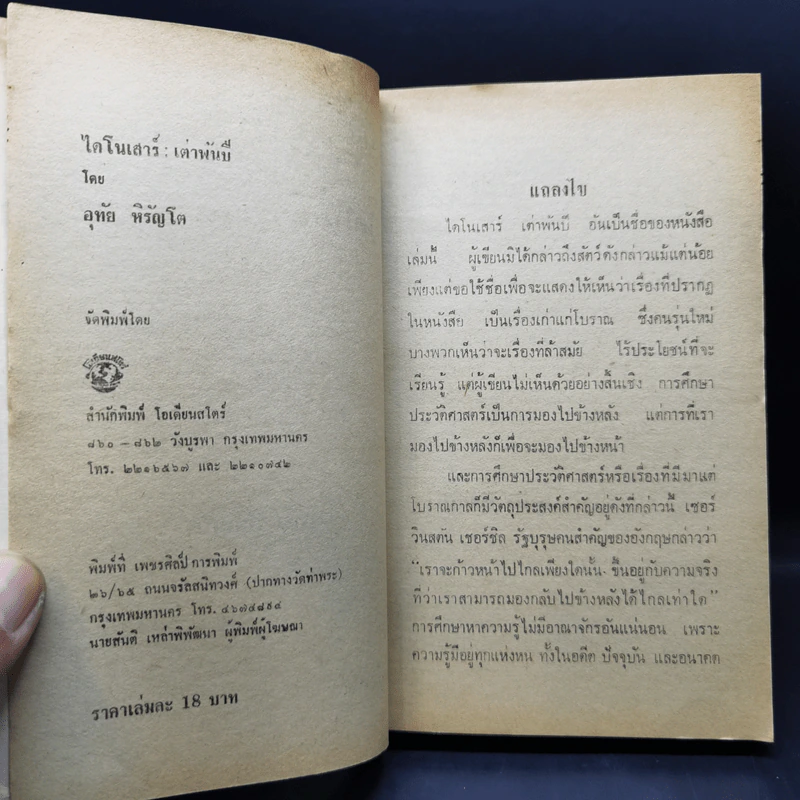 ไดโนเสาร์ : เต่าพันปี
โดย
อุทัย หิรัญโต
จัดพิมพ์โดย
สำนักพิมพ์ โอเดียนสโตร์
๘๖๐ – ๘๖๒ วังบูรพา กรุงเทพมหานคร
โทร. ๒๒๑๖๕๖๗ และ ๒๒๑๐๗๔๒
พิมพ์ที่ เพชรศิลป์ การพิมพ์
๒๖/๖๕ ถนนจรัลสนิทวงศ์ (ปากทางวัดท่าพระ)
กรุงเทพมหานคร โทร.
นายสันติ เหล่าพิพัฒนา ผู้พิมพ์ผู้โฆษณา
ราคาเล่มละ 18 บาท
แถลงไข
ไดโนเสาร์ เต่าพันปี อันเป็นชื่อของหนังสือ
เล่มนี้ ผู้เขียนมิได้กล่าวถึงสัตว์ดังกล่าวแม้แต่น้อย
เพียงแต่ขอใช้ชื่อเพื่อจะแสดงให้เห็นว่าเรื่องที่ปรากฏ
ในหนังสือ เป็นเรื่องเก่าแก่โบราณ ซึ่งคนรุ่นใหม่
บางพวกเห็นว่าจะเรื่องที่ล้าสมัย ไร้ประโยชน์ที่จะ
เรียนรู้ แต่ผู้เขียนไม่เห็นด้วยอย่างสิ้นเชิง การศึกษา
ประวัติศาสตร์เป็นการมองไปข้างหลัง แต่การที่เรา
มองไปข้างหลังก็เพื่อจะมองไปข้างหน้า
และการศึกษาประวัติศาสตร์หรือเรื่องที่มีมาแต่
โบราณกาลก็มีวัตถุประสงค์สำคัญอยู่ดังที่กล่าวนี้ เซอร์
วินสตัน เชอร์ชิล รัฐบุรุษคนสำคัญของอังกฤษกล่าวว่า
"เราจะก้าวหน้าไปไกลเพียงใดนั้น ขึ้นอยู่กับความจริง
ที่ว่าเราสามารถมองกลับไปข้างหลังได้ไกลเท่าใด"
การศึกษาหาความรู้ไม่มีอาณาจักรอันแน่นอน เพราะ
ความรู้มีอยู่ทุกแห่งหน ทั้งในอดีต ปัจจุบัน และอนาคต